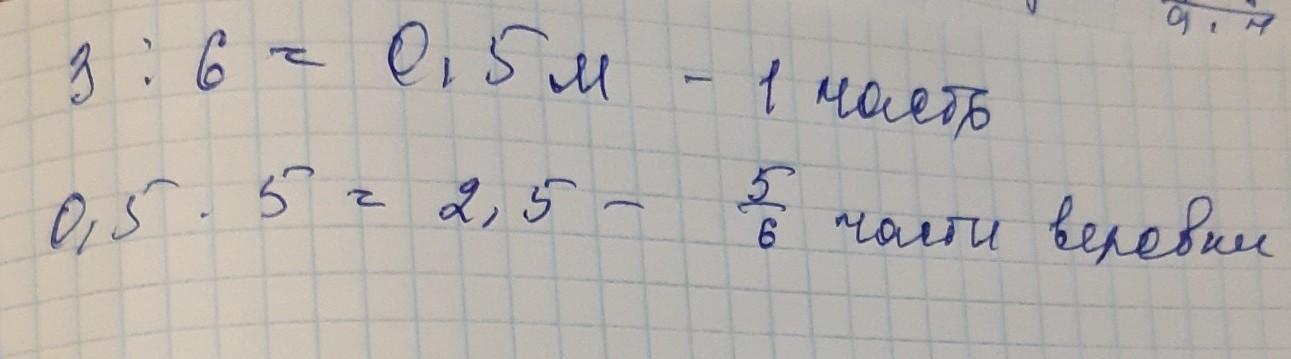 3 : 6 = 0,5 м - 1 часть
0,5 . 5 = 2,5 - 5/6 части веревки